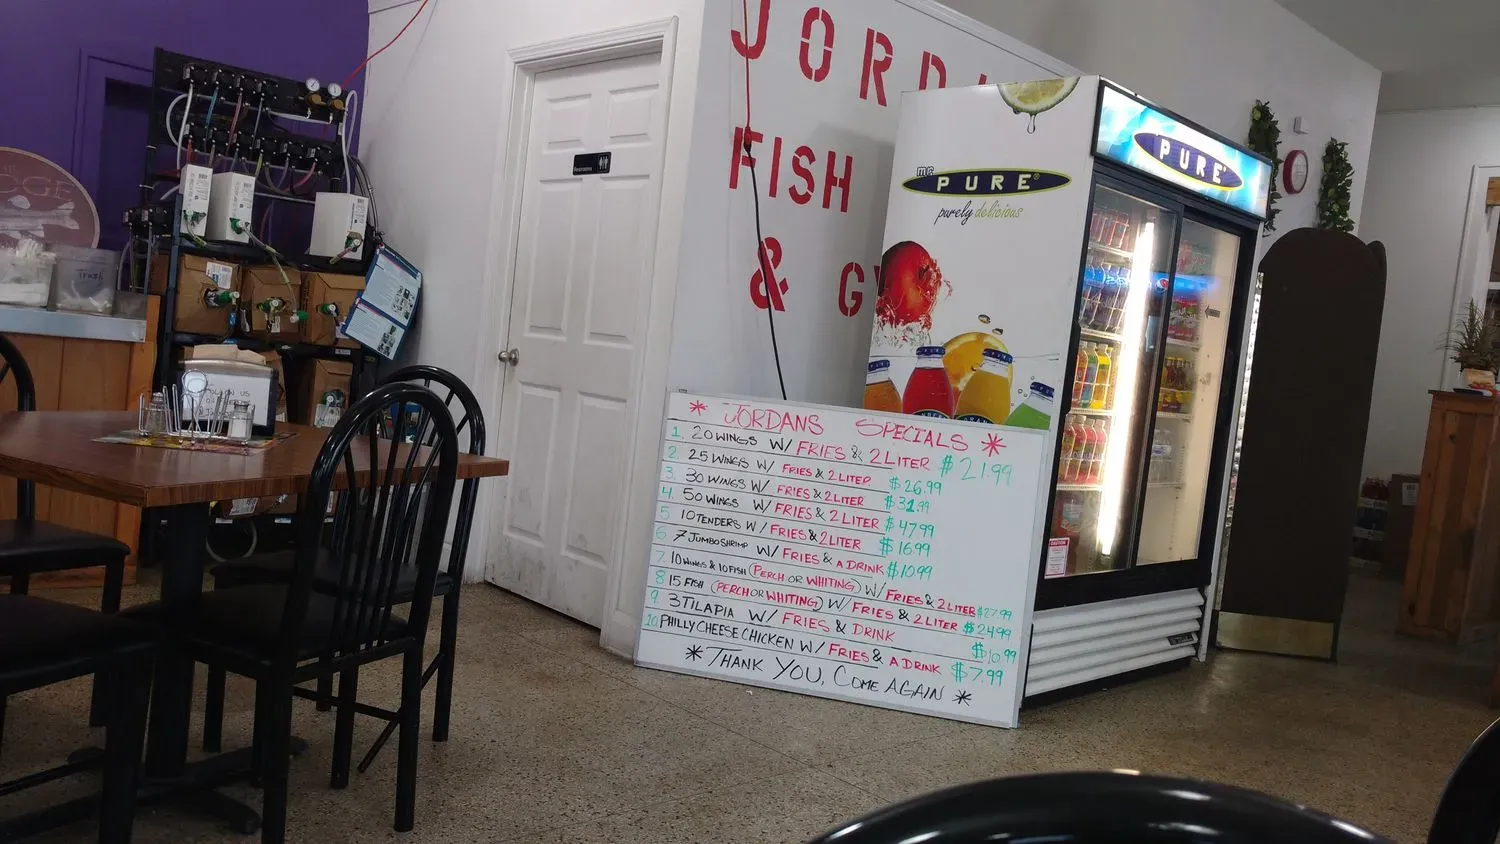 JORDA
FISH
& G
Restrooms
mr PURE®
purely delicious
PURE
Trash
FOLLOW US
CAUTION
* JORDANS SPECIALS *
1. 20 WINGS W/ FRIES & 2 LITER $21.99
2. 25 WINGS W/ FRIES & 2 LITER $26.99
3. 30 WINGS W/ FRIES & 2 LITER $31.99
4. 50 WINGS W/ FRIES & 2 LITER $47.99
5. 10 TENDERS W/ FRIES & 2 LITER $16.99
6. 7 JUMBO SHRIMP W/ FRIES & A DRINK $10.99
7. 10 WINGS & 10 FISH (PERCH OR WHITING) W/ FRIES & 2 LITER $27.99
8 15 FISH (PERCH OR WHITING) W/ FRIES & 2 LITER $24.99
9 3 TILAPIA W/ FRIES & DRINK $10.99
10. PHILLY CHEESE CHICKEN W/ FRIES & A DRINK $7.99
* THANK YOU, COME AGAIN *